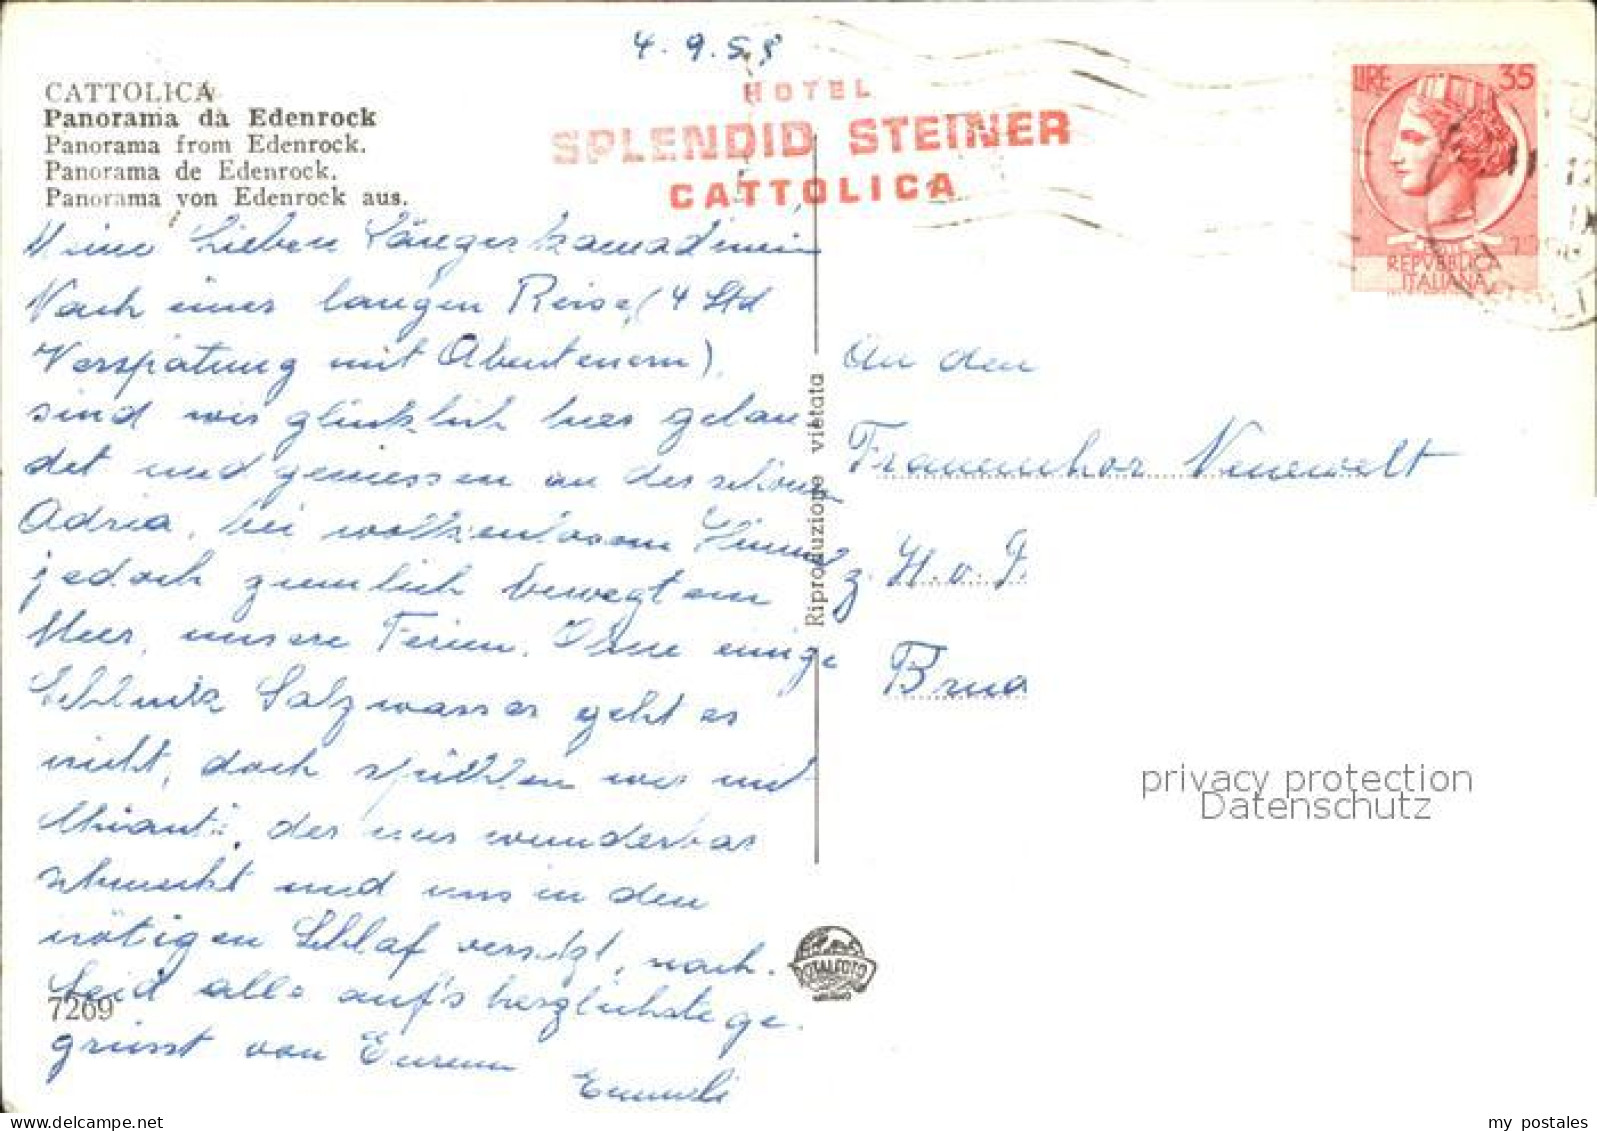 4.9.58
CATTOLICA
Panorama da Edenrock
Panorama from Edenrock.
Panorama de Edenrock.
Panorama von Edenrock aus.
HOTEL
SPLENDID STEINER
CATTOLICA
LIRE 35
REPVBBLICA
ITALIANA
Meine Lieben Sängerkamadinnin
Nach einer langen Reise, (4 Std
Verspätung mit Abenteuern)
sind wir glücklich hier gelan
det und geniessen an der schönen
Adria, bei wolkenlosem Himmel
jedoch ziemlich bewegtem
Meer, unsere Ferien. Ohne einige
Schluck Salzwasser geht es
nicht, doch spühlen wir mit
Chianti, der uns wunderbar
schmeckt und uns in den
nötigen Schlaf versetzt, nach.
Seid alle auf's herzlichste ge.
grüsst von Eurem
Emmeli
7269
Riproduzione vietata
An den
Frauenchor Neuewelt
z. H. v. F.
Brua
privacy protection
Datenschutz
my postales